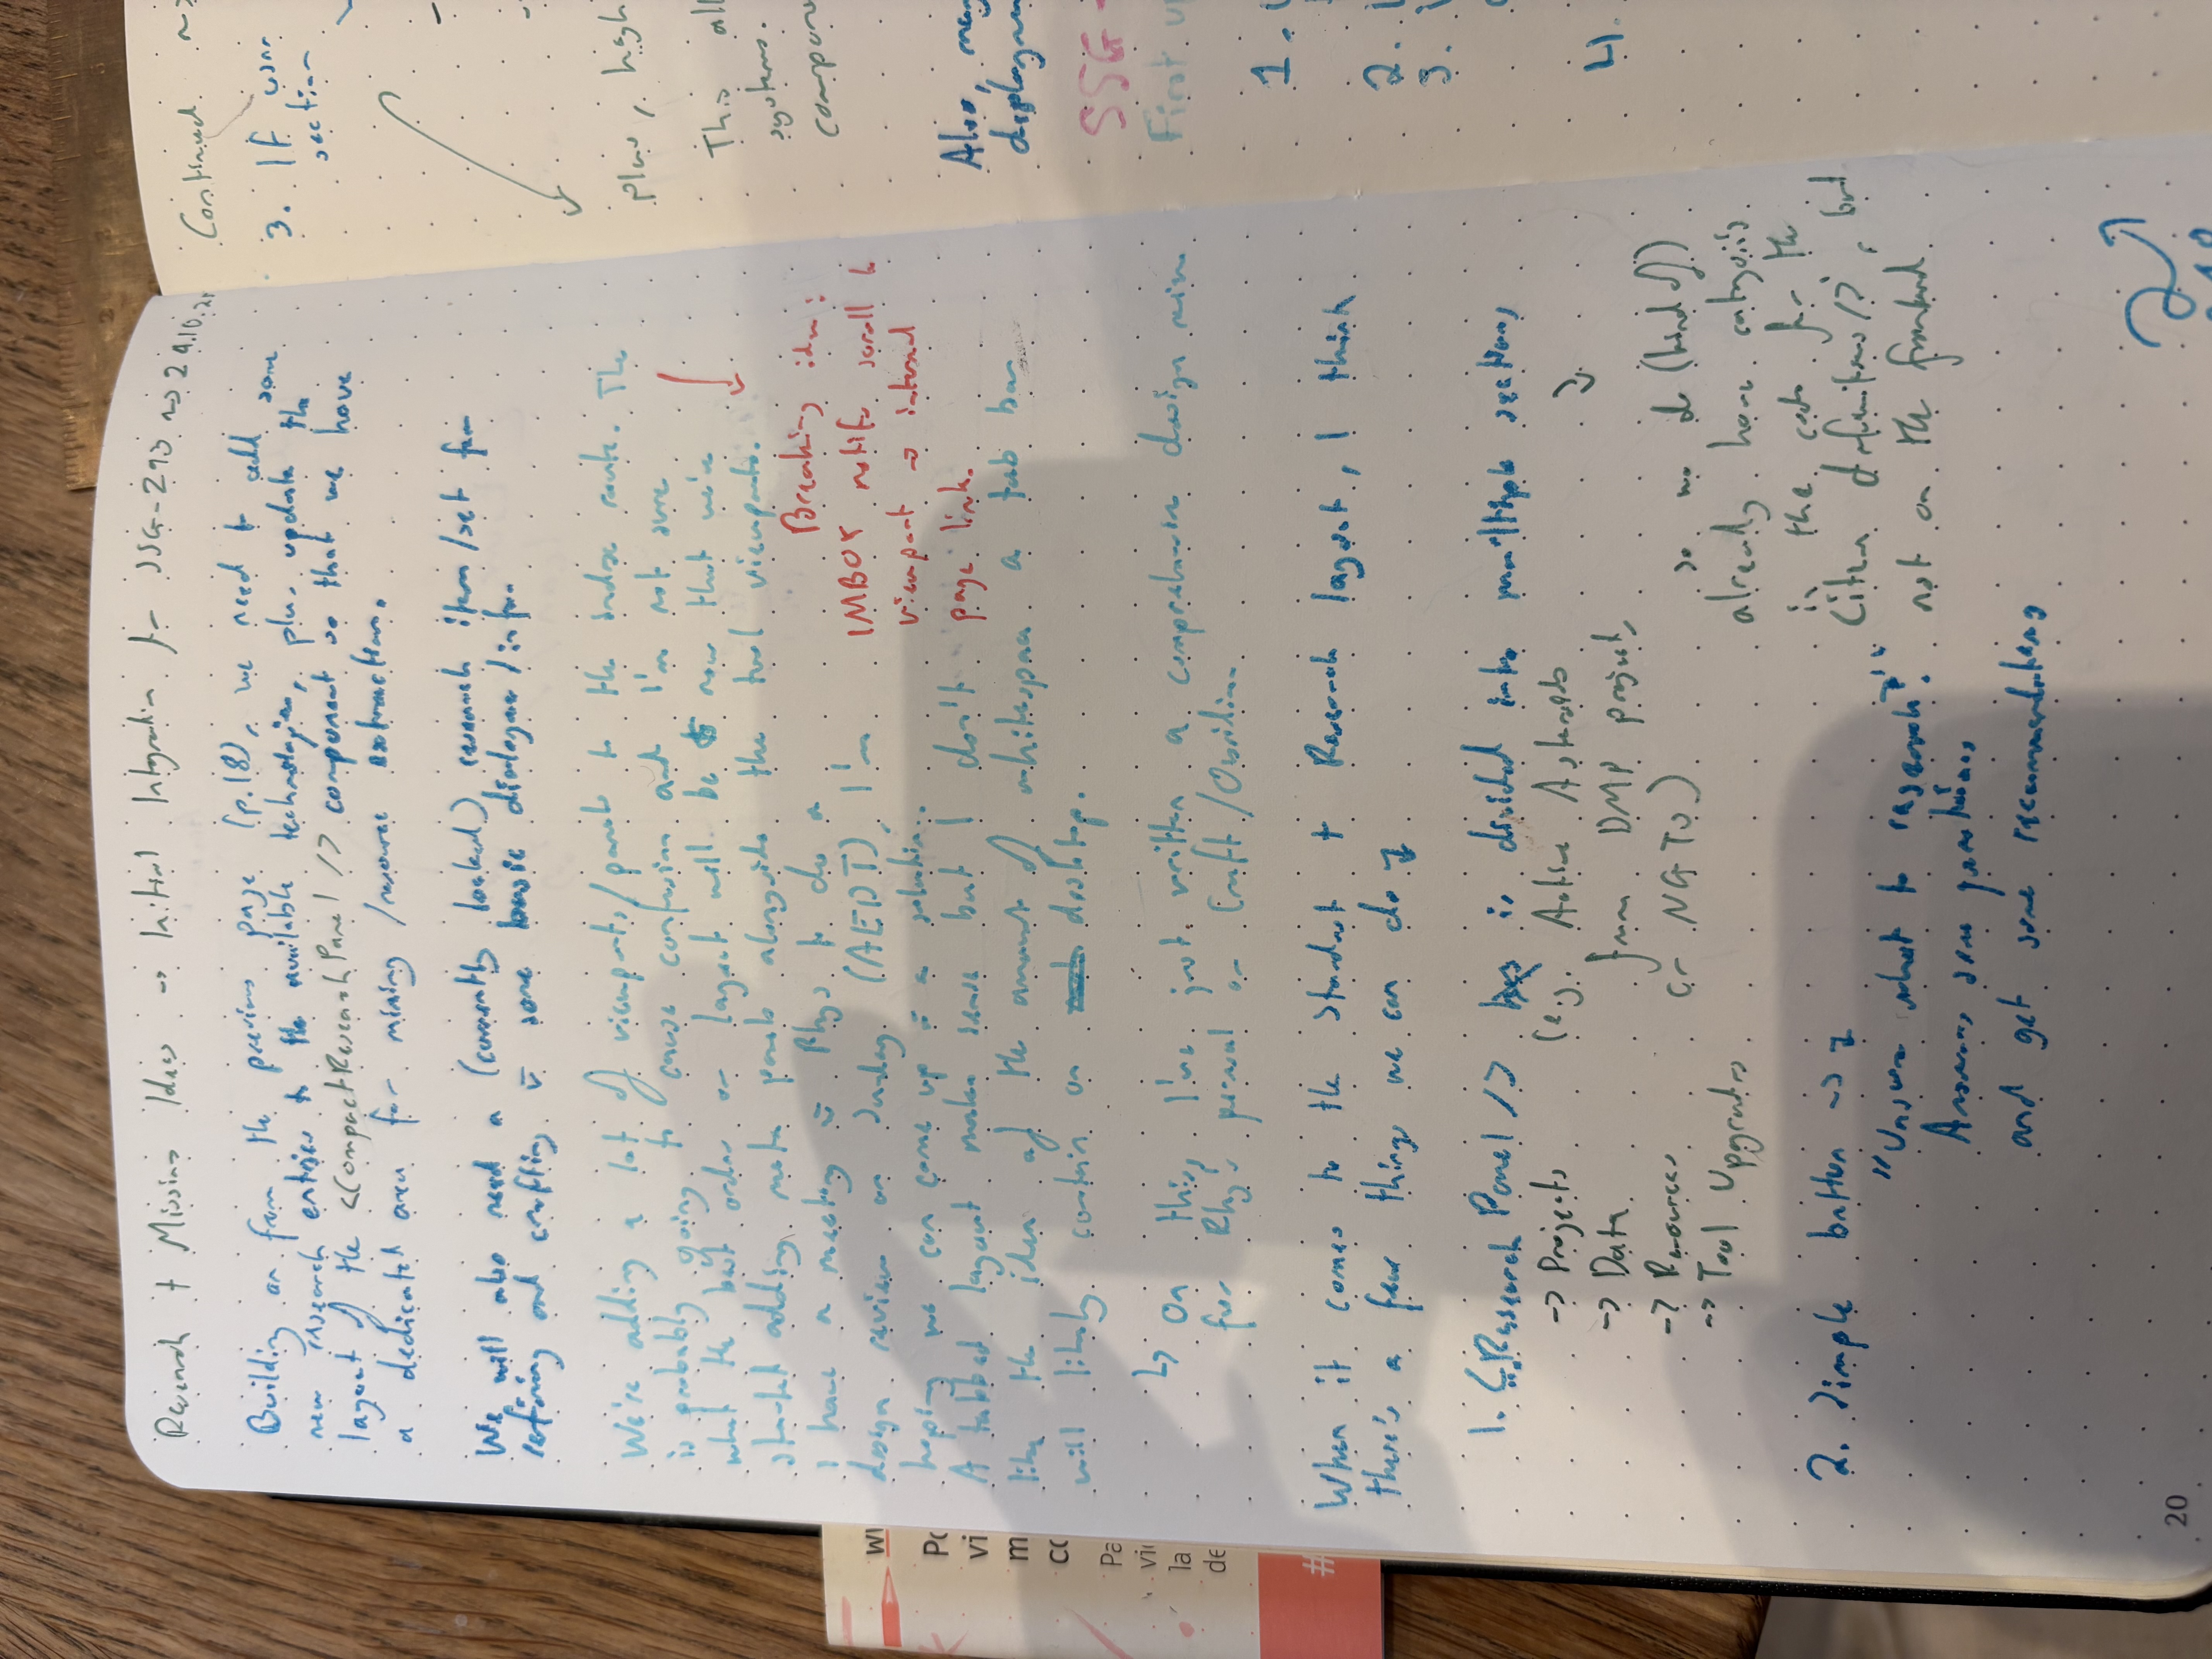 Research + Missions Ideas -> Initial Integration for SSG-293 -> 29.10.
Building on from the previous page (p.18), we need to add some
new research entries to the available technologies, plus update the
layout of the <CompactResearchPanel /> component so that we have
a dedicated area for mining/resource extraction.
We will also need a (currently locked) research item/set for
refining and crafting w/ some basic dialogue/info.
We're adding a lot of viewports/panels to the index route. This
is probably going to cause confusion and I'm not sure
what the best order or layout will be now that we're
started adding meta panels alongside the tool viewports.
I have a meeting w/ Rhys to do a
design review on Sunday (AEDT), I'm
hoping we can come up w/ a solution.
A tabbed layout makes sense but I don't
like the idea of the amount of whitespace a tab bar
will likely contain on desktop.
Breaking idea:
INBOX notifs scroll to
viewport -> internal
page link.
↳ On this, I've just written a comprehensive design review
for Rhys' perusal on Craft/Outline.
When it comes to the standard + Research layout, I think
there's a few things we can do ↴
1. <ResearchPanel /> is divided into multiple sections
-> Projects (e.g. Active Asteroids
-> Data from DMP project,
-> Resources or NGTS)
-> Tool Upgrades
So we do (kind of)
already have categories
in the code for the
item definitions/s, but
not on the frontend
2. Simple button -> ↴
"Unsure what to research?"
Answer some questions
and get some recommendations
20
Continued
3. If
section
plus, high
This
systems.
Also, may
SSG -
First up
1.
2.
3.
4.
Pa
vi
m
Pa
la
de
#